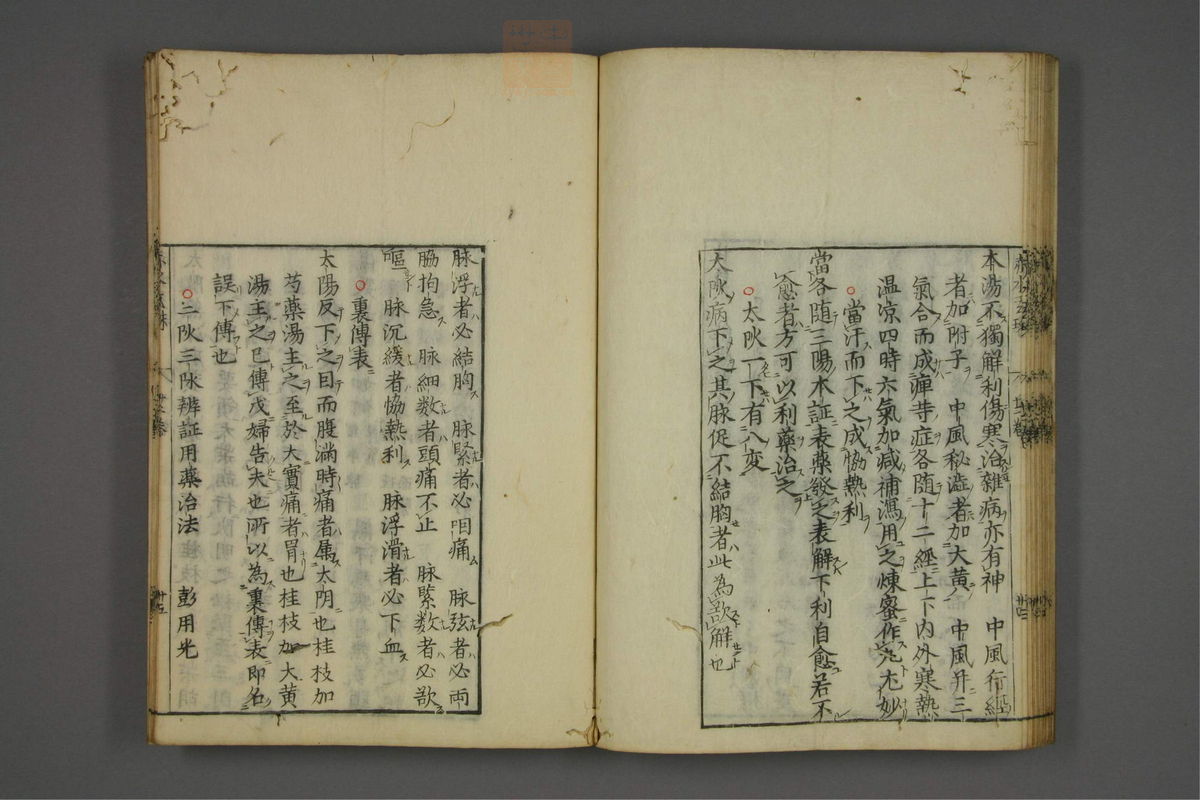 本湯不獨解利傷寒治雜病亦有神　中風行經
者加附子　中風秘澁者加大黄　中風并三
氣合而成痺䒭症各随十二經上下内外寒熱
温凉四時六氣加减補瀉用之煉蜜作尤妙
○當汗而下之成恊熱利
當各随三陽本証表藥發之表解下利自愈若不
愈者方可以利藥治之
○太阦一下有八变
太阦病下之其脉促不結胸者此為欲解也
脉浮者必結胸　脉緊者必咽痛　脉弦者必両
脇拘急　脉細数者頭痛不止　脉緊数者必欲
嘔　脉沉緩者恊熱利　脉浮滑者必下血
○裏傳表
太陽反下之因而腹滿時痛者属太阴也桂枝加
芍藥湯主之至於大實痛者胃也桂枝加大黄
湯主之已傳戊婦告夫也所以為裏傳表即名
誤下傳也
○二阦三阦辨証用藥治法　彭用光